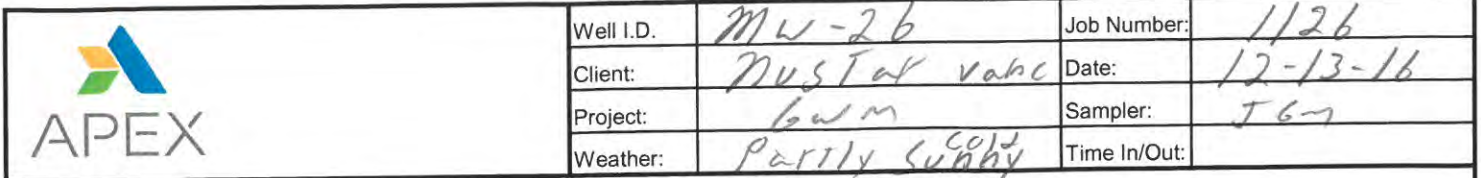 APEX
Well I.D. MW-26 Job Number: 1126
Client: NuStar Vanc Date: 12-13-16
Project: GWM Sampler: JGM
Weather: Partly Sunny cold Time In/Out: